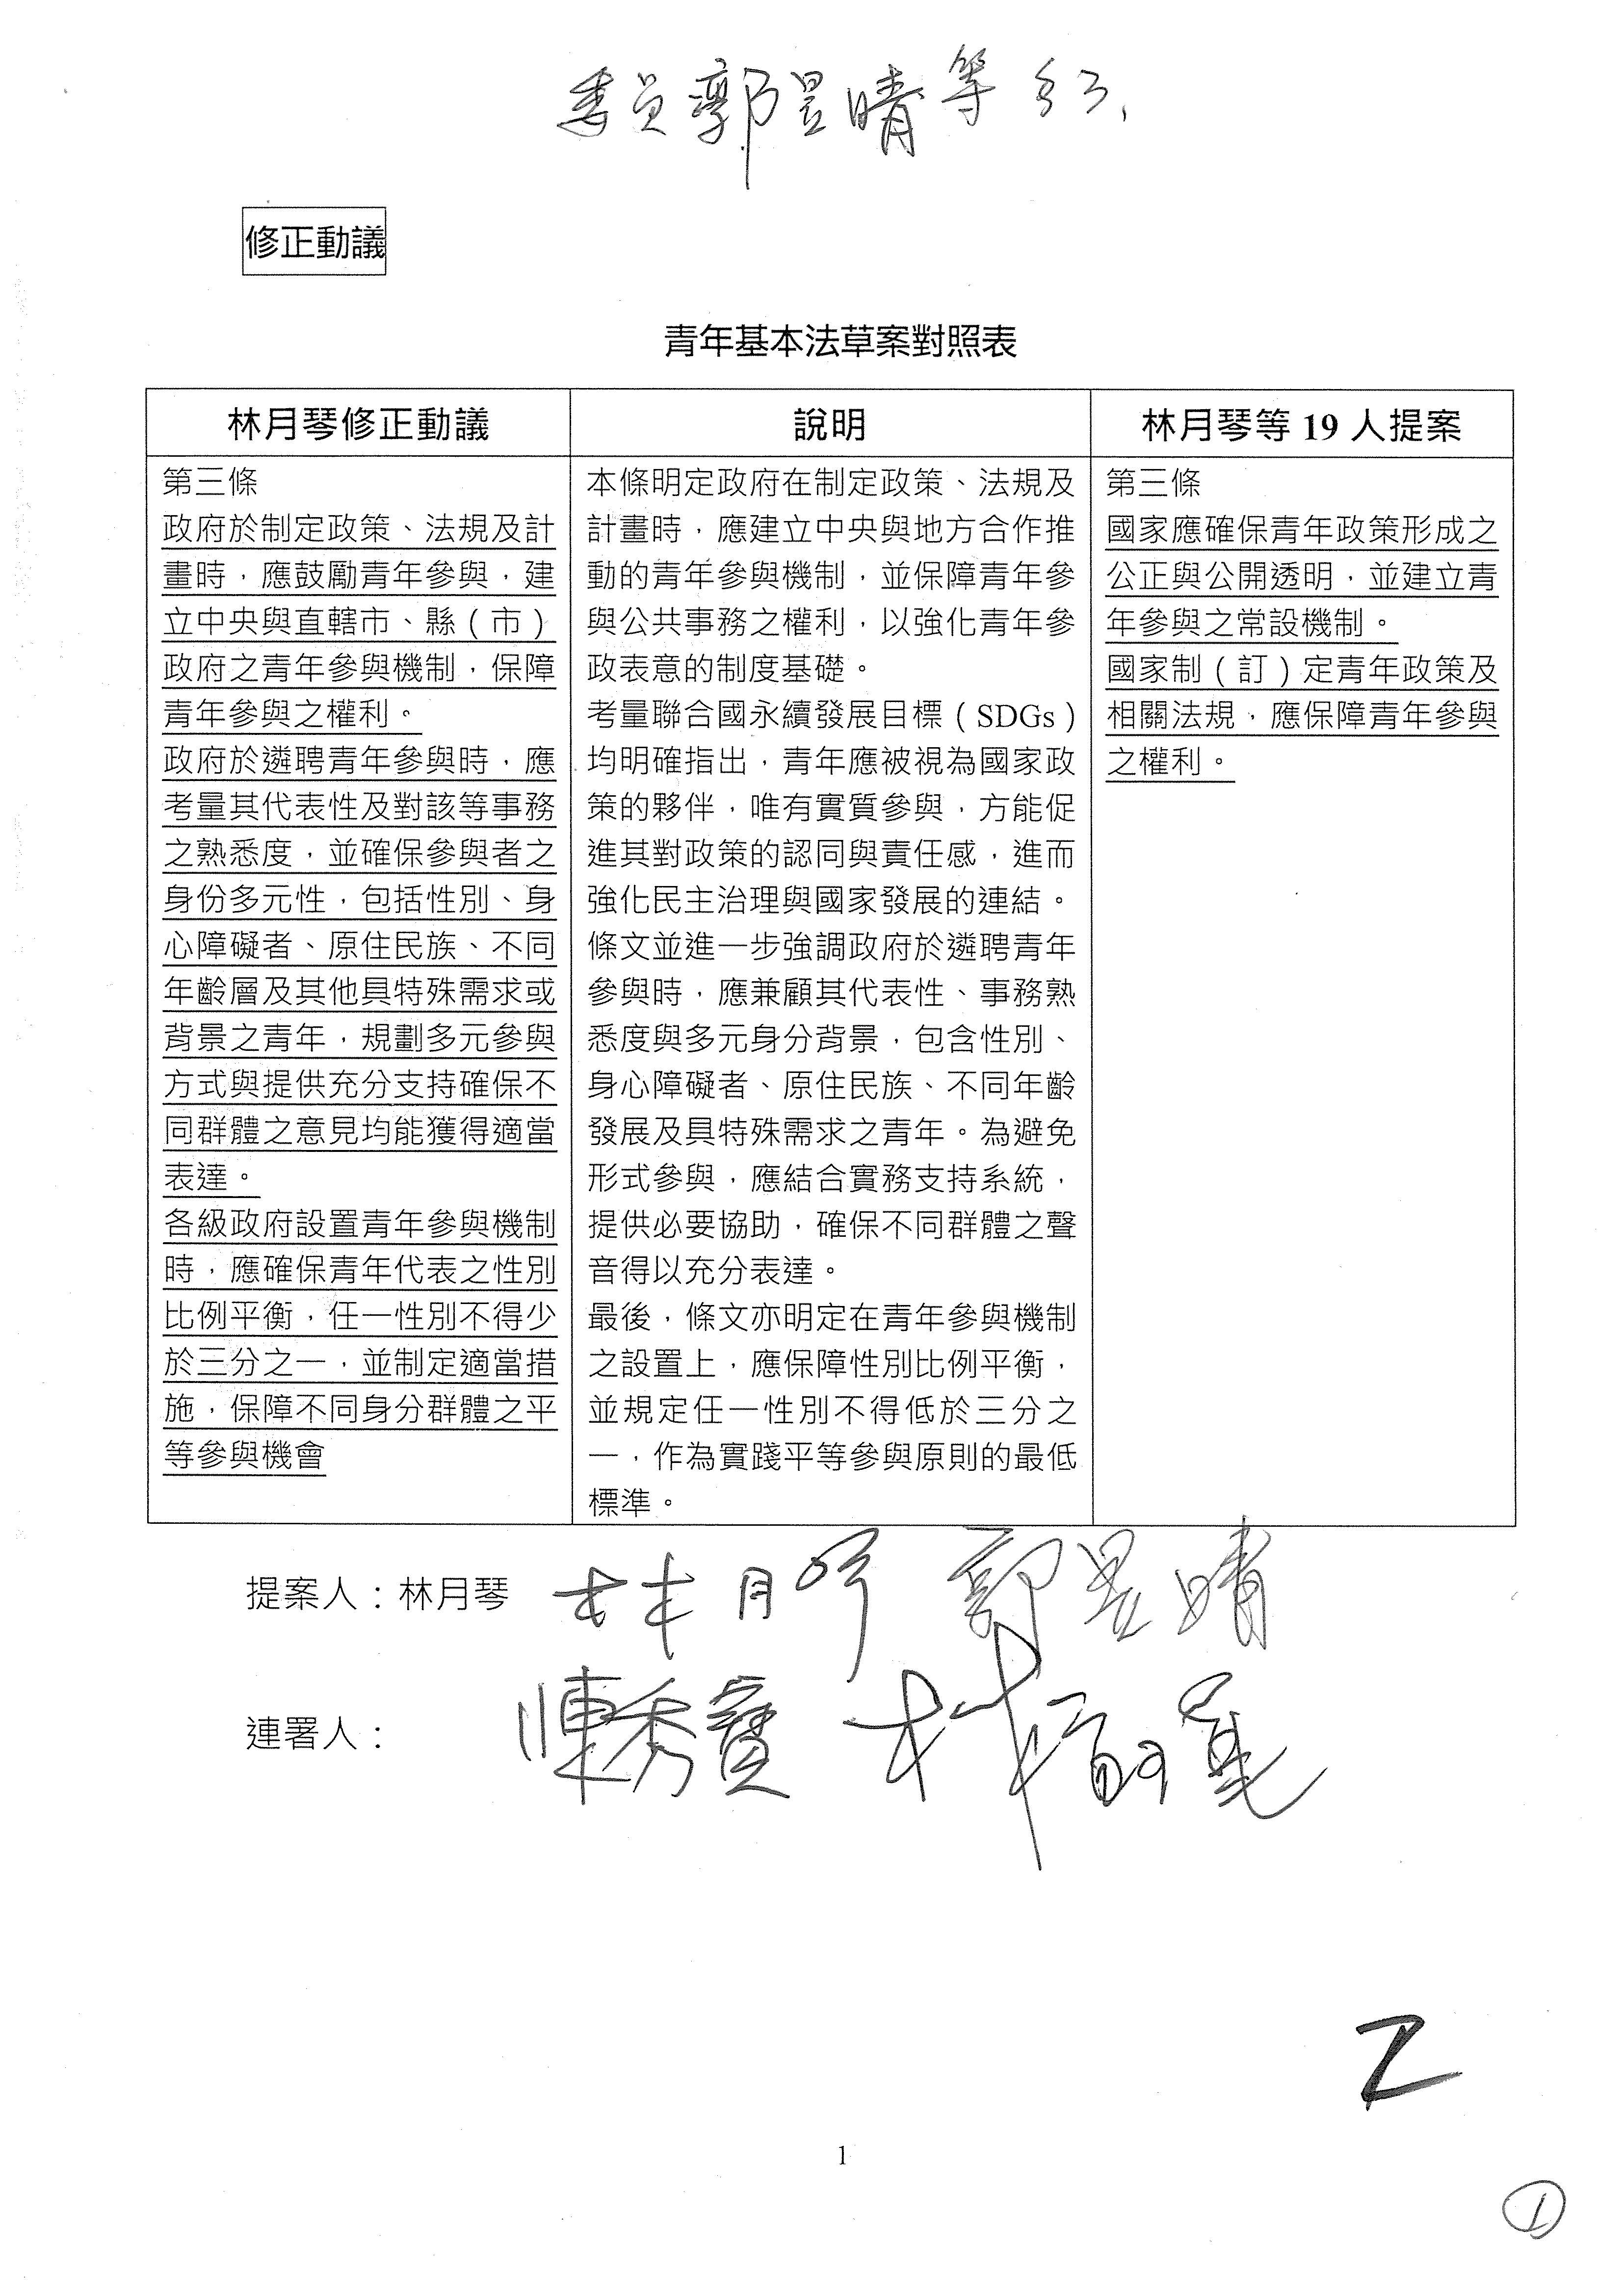 委員郭昱晴等
修正動議
青年基本法草案對照表
林月琴修正動議
第三條
政府於制定政策、法規及計
畫時，應鼓勵青年參與，建
立中央與直轄市、縣（市）
政府之青年參與機制，保障
青年參與之權利。
政府於遴聘青年參與時，應
考量其代表性及對該等事務
之熟悉度，並確保參與者之
身份多元性，包括性別、身
心障礙者、原住民族、不同
年齡層及其他具特殊需求或
背景之青年，規劃多元參與
方式與提供充分支持確保不
同群體之意見均能獲得適當
表達。
各級政府設置青年參與機制
時，應確保青年代表之性別
比例平衡，任一性別不得少
於三分之一，並制定適當措
施，保障不同身分群體之平
等參與機會
說明
本條明定政府在制定政策、法規及
計畫時，應建立中央與地方合作推
動的青年參與機制，並保障青年參
與公共事務之權利，以強化青年參
政表意的制度基礎。
考量聯合國永續發展目標（SDGs）
均明確指出，青年應被視為國家政
策的夥伴，唯有實質參與，方能促
進其對政策的認同與責任感，進而
強化民主治理與國家發展的連結。
條文並進一步強調政府於遴聘青年
參與時，應兼顧其代表性、事務熟
悉度與多元身分背景，包含性別、
身心障礙者、原住民族、不同年齡
發展及具特殊需求之青年。為避免
形式參與，應結合實務支持系統，
提供必要協助，確保不同群體之聲
音得以充分表達。
最後，條文亦明定在青年參與機制
之設置上，應保障性別比例平衡，
並規定任一性別不得低於三分之
一，作為實踐平等參與原則的最低
標準。
林月琴等 19 人提案
第三條
國家應確保青年政策形成之
公正與公開透明，並建立青
年參與之常設機制。
國家制（訂）定青年政策及
相關法規，應保障青年參與
之權利。
提案人：林月琴 林月琴 郭昱晴
連署人： 陳秀寳
1
①